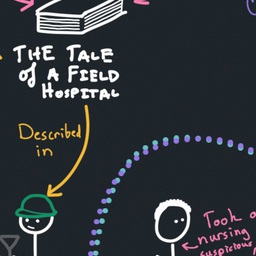 THE TALE
of A FIELD
HOSPITAL
Described
in
Took
nursing
suspicious